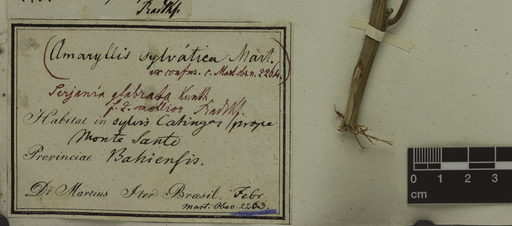 Radlkf.
(Amaryllis sylvatica Mart.)
ex confus. c. Mart. obs. 2264.
Serjania glabrata Kunth
f. 2. mollior Radlkf.
Habitat in sylvis Catingas prope
Monte Santo
Provinciae Bahiensis.
Dr Martius Iter Brasil. Febr
Mart. Obs. 2263
0 1 2 3
cm